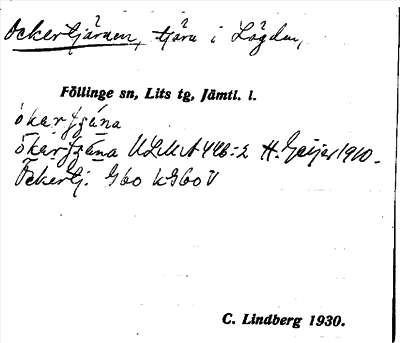 Ockertjärnen, tjärn i Lögden,
Föllinge sn, Lits tg, Jämtl. l.
ökarfzäna
ökarfzäna ULMA 446:2 H. Geijer 1910.
Öckertj. G60 kG60V
C. Lindberg 1930.